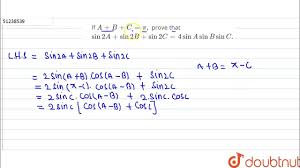 51238539
If A + B + C = π, prove that
sin 2A + sin 2B + sin 2C = 4 sin A sin B sin C.
L.H.S = Sin2A + Sin2B + Sin2C
A+B = π - C
= 2 Sin(A+B) Cos(A-B) + Sin2C
= 2 Sin(π-C). Cos(A-B) + Sin2C
= 2 SinC. Cos(A-B) + 2 SinC. CosC
= 2 SinC [Cos(A-B) + CosC]
doubtnut